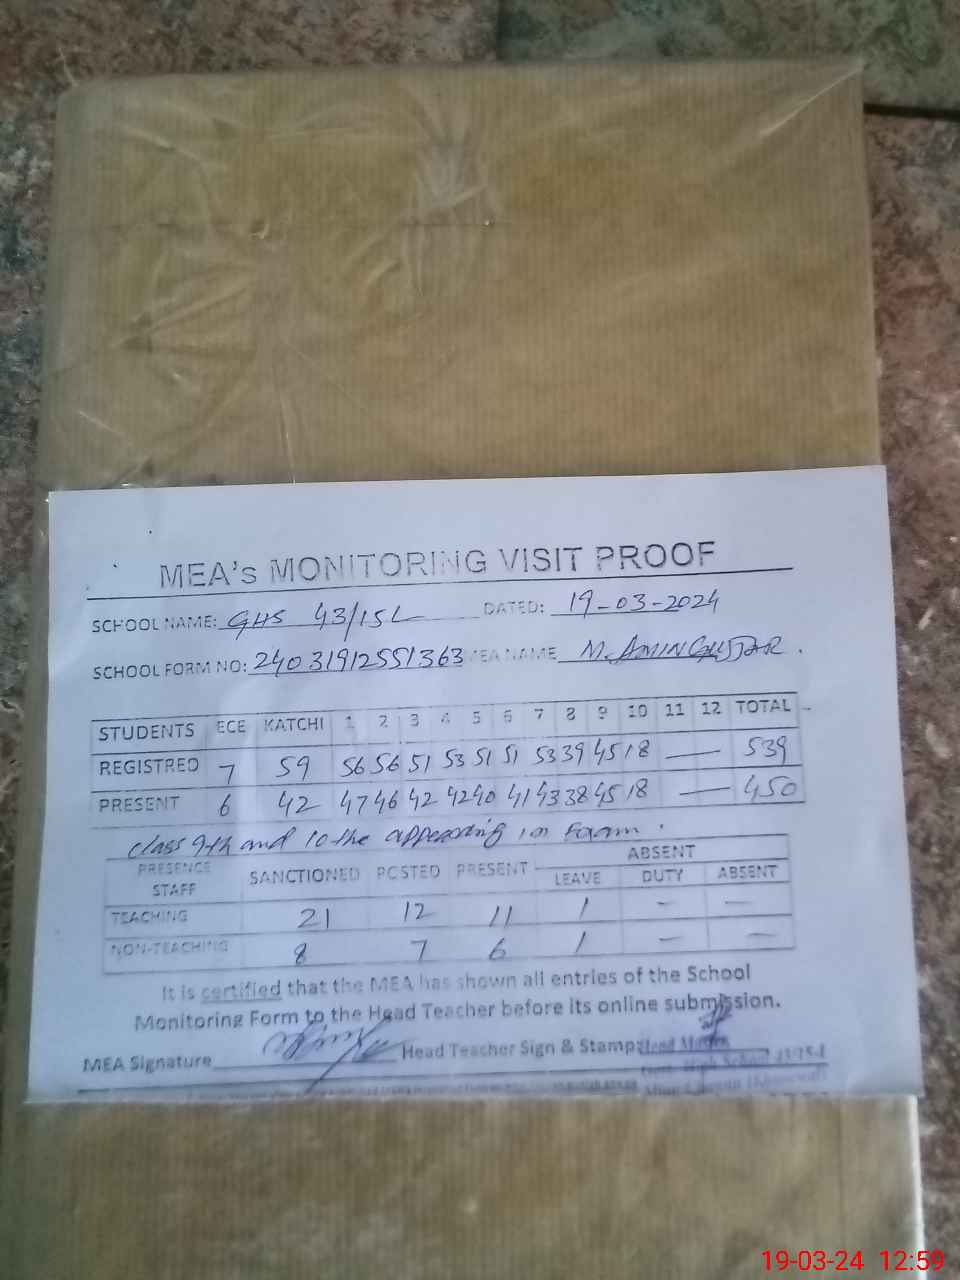 MEA's MONITORING VISIT PROOF
SCHOOL NAME: GHS 43/15L DATED: 19-03-2024
SCHOOL FORM NO: 24031912551363 MEA NAME M. AMIN GUJJAR.
STUDENTS ECE KATCHI 1 2 3 4 5 6 7 8 9 10 11 12 TOTAL
REGISTRED 7 59 56 56 51 53 51 51 53 39 45 18 — 539
PRESENT 6 42 47 46 42 42 40 41 43 38 45 18 — 450
class 9th and 10the appearing in Exam.
PRESENCE STAFF SANCTIONED POSTED PRESENT ABSENT
LEAVE DUTY ABSENT
TEACHING 21 12 11 1 - -
NON-TEACHING 8 7 6 1 - -
It is certified that the MEA has shown all entries of the School
Monitoring Form to the Head Teacher before its online submission.
MEA Signature Head Teacher Sign & Stamp: Head Master
Govt. High School 43/15-L
19-03-24 12:59